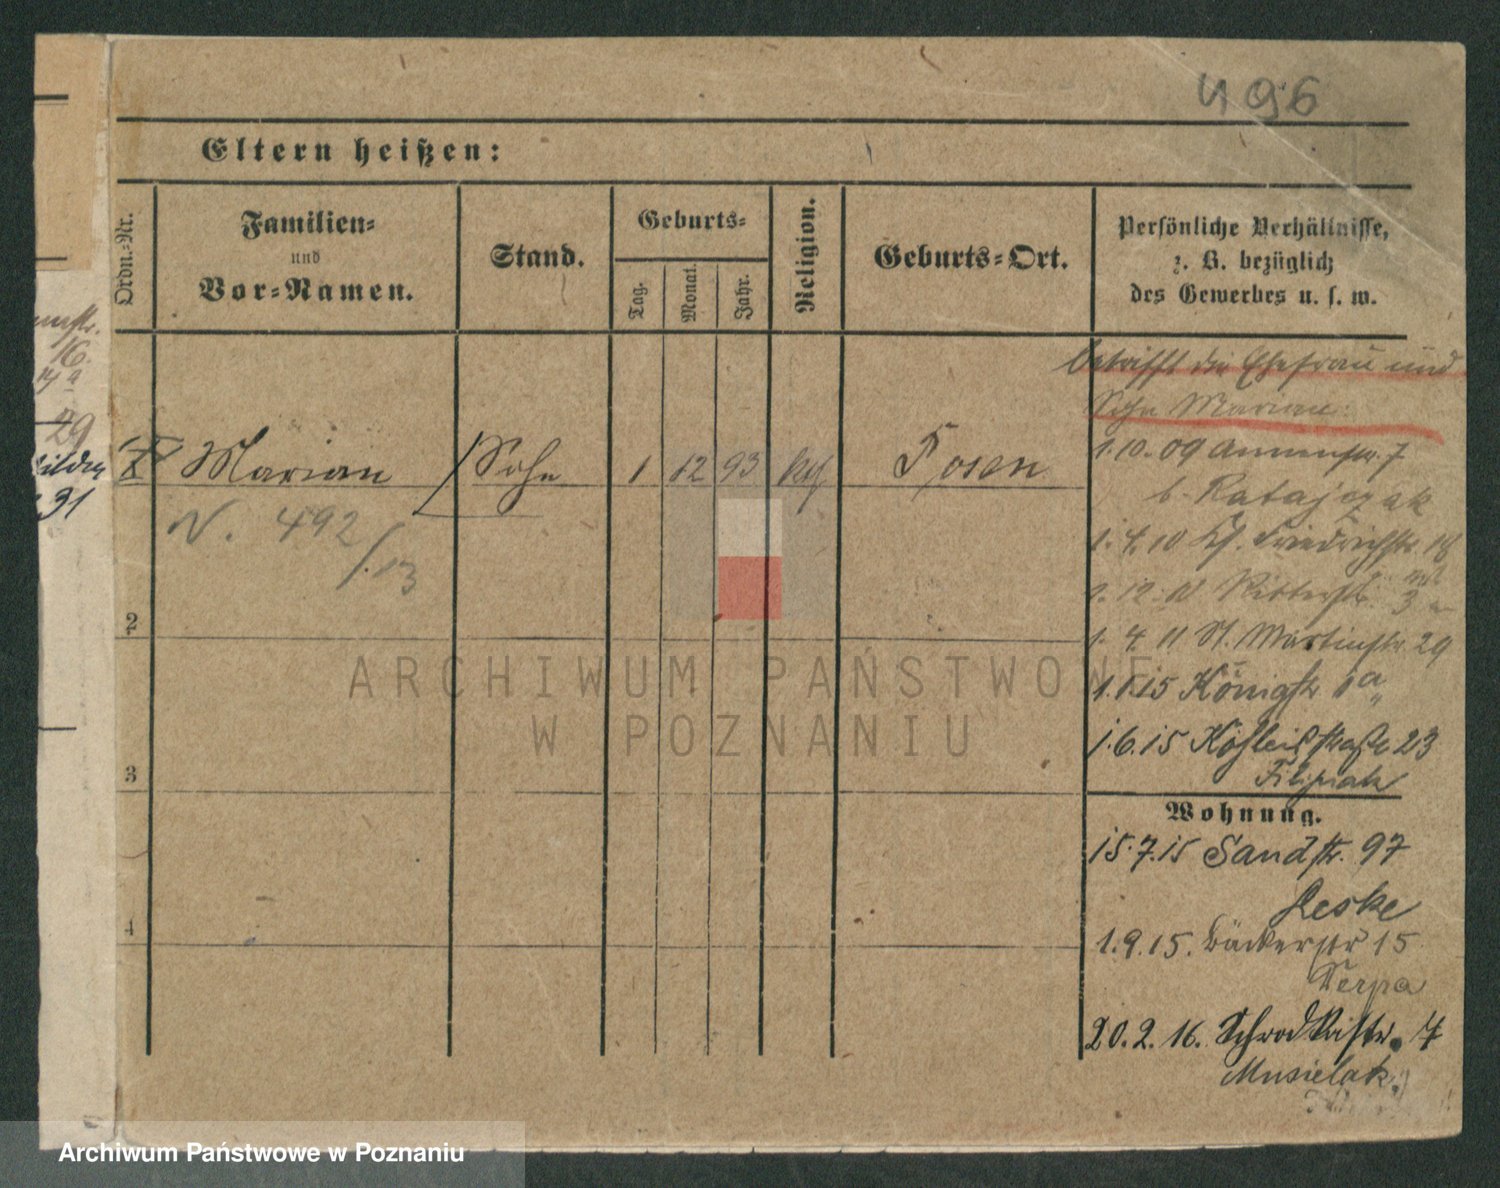 496
Eltern heißen:
Ordn.-Nr.
Familien-
und
Vor-Namen.
Stand.
Geburts-
Tag.
Monat.
Jahr.
Religion.
Geburts-Ort.
Persönliche Verhältnisse,
z. B. bezüglich
des Gewerbes u. s. w.
betrifft die Ehefrau und
Sohn Marian:
Marian Sohn 1 12 93 Posen
N. 492
/.13
1.10.09 Annenstr. 7
b. Ratajczak
1.4.10 Kl. Friedrichstr. 18
Ritterstr. 3
1. 4. 11 St. Martinstr. 29
1.1.15 Königstr 1a
1.6.15 straße 23
Filipiak
Wohnung.
15.7.15 Sandstr. 97
Leske
1.9.15. Bäckerstr 15
Serpa
20.2.16. Schrodkastr. 4
Musielak
2
3
4
16.
29
31
ARCHIWUM PAŃSTWOWE
W POZNANIU
Archiwum Państwowe w Poznaniu